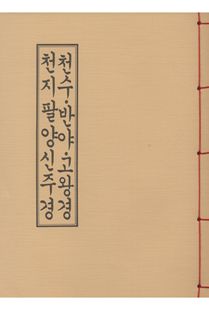 천수·반야·고왕경
천지팔양신주경